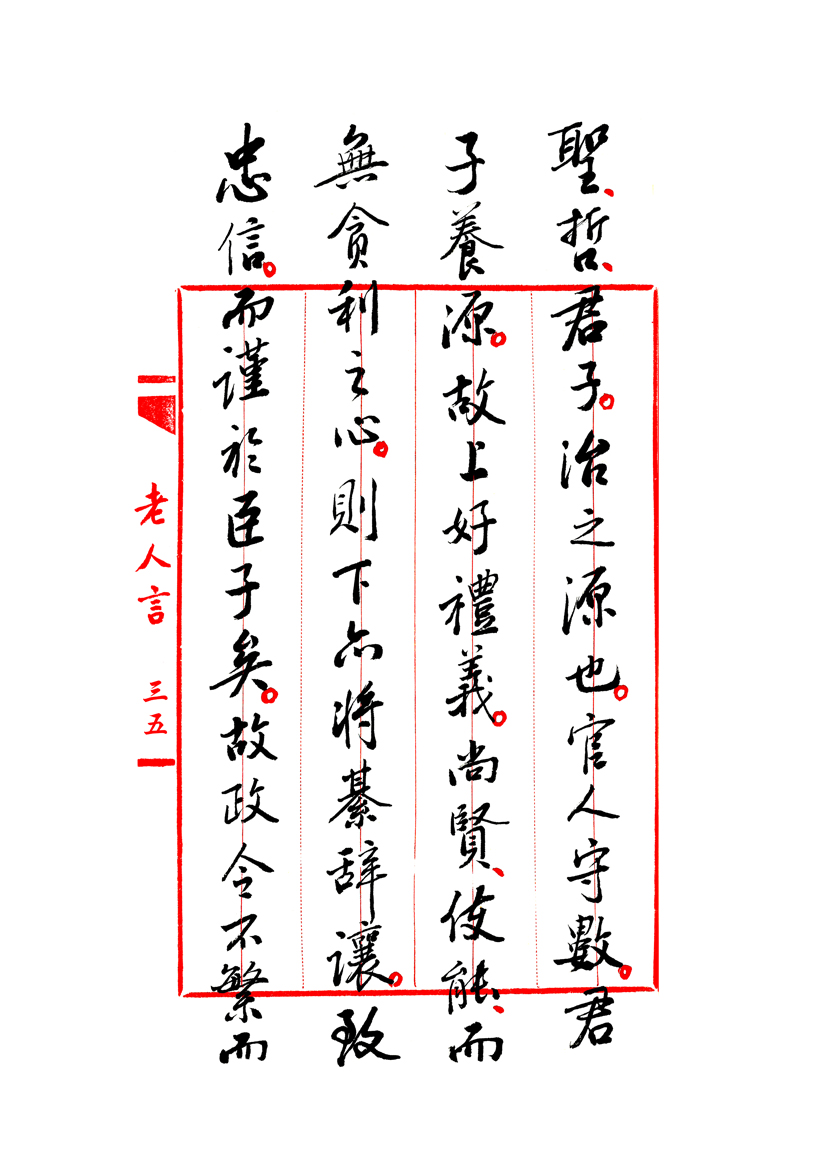 聖、哲、君子。治之源也。官人守數。君
子養源。故上好禮義。尚賢、使能、而
無貪利之心。則下亦將綦辭讓。致
忠信。而謹於臣子矣。故政令不繁而
老人言 三五